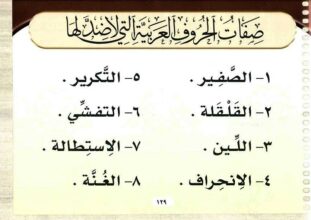 صِفَاتُ الْحُرُوفِ الْعَرَبِيَّةِ الَّتِي لَا ضِدَّ لَهَا
١- الصَّفِير .
٢- القَلْقَلة .
٣- اللِّـين .
٤- الإنحِراف .
٥- التَّكرير .
٦- التفشِّي .
٧- الإستِطالة .
٨- الغُنَّة .
١٢٩